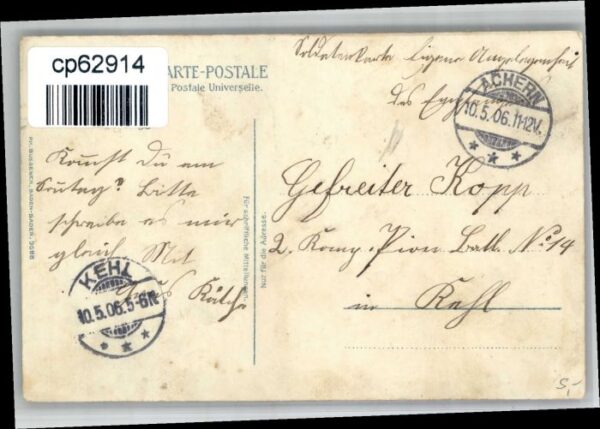 cp62914
CARTE-POSTALE
Postale Universelle.
Soldatenkarte Eigene Angelegenheit
des Empfängers
ACHERN
10.5.06.11-12V.
Kommst Du am
Sontag? Bitte
schreibe es mir
gleich Mit
Gruß
Gefreiter Kopp
2. Komp. Pion. Batl. No 14
in Kehl
KEHL
10.5.06.5-6N.
Für schriftliche Mitteilungen.
Nur für die Adresse.
BADEN-BADEN
5,-